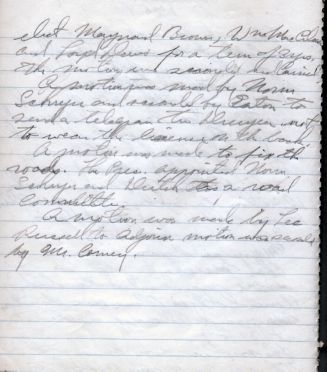 elect Maynard Brown, Wm Mac
and for a term of years,
the motion was seconded and carried
A motion was made by Norm
Sawyer and seconded by Eaton to
send a telegram to not
to wear the on the
A motion was made to fix the
roads. The Pres. appointed Norm
Sawyer and as a road
Committee.
A motion was made by Lee
Russel to Adjorn motion was seconded
by M. Comey.